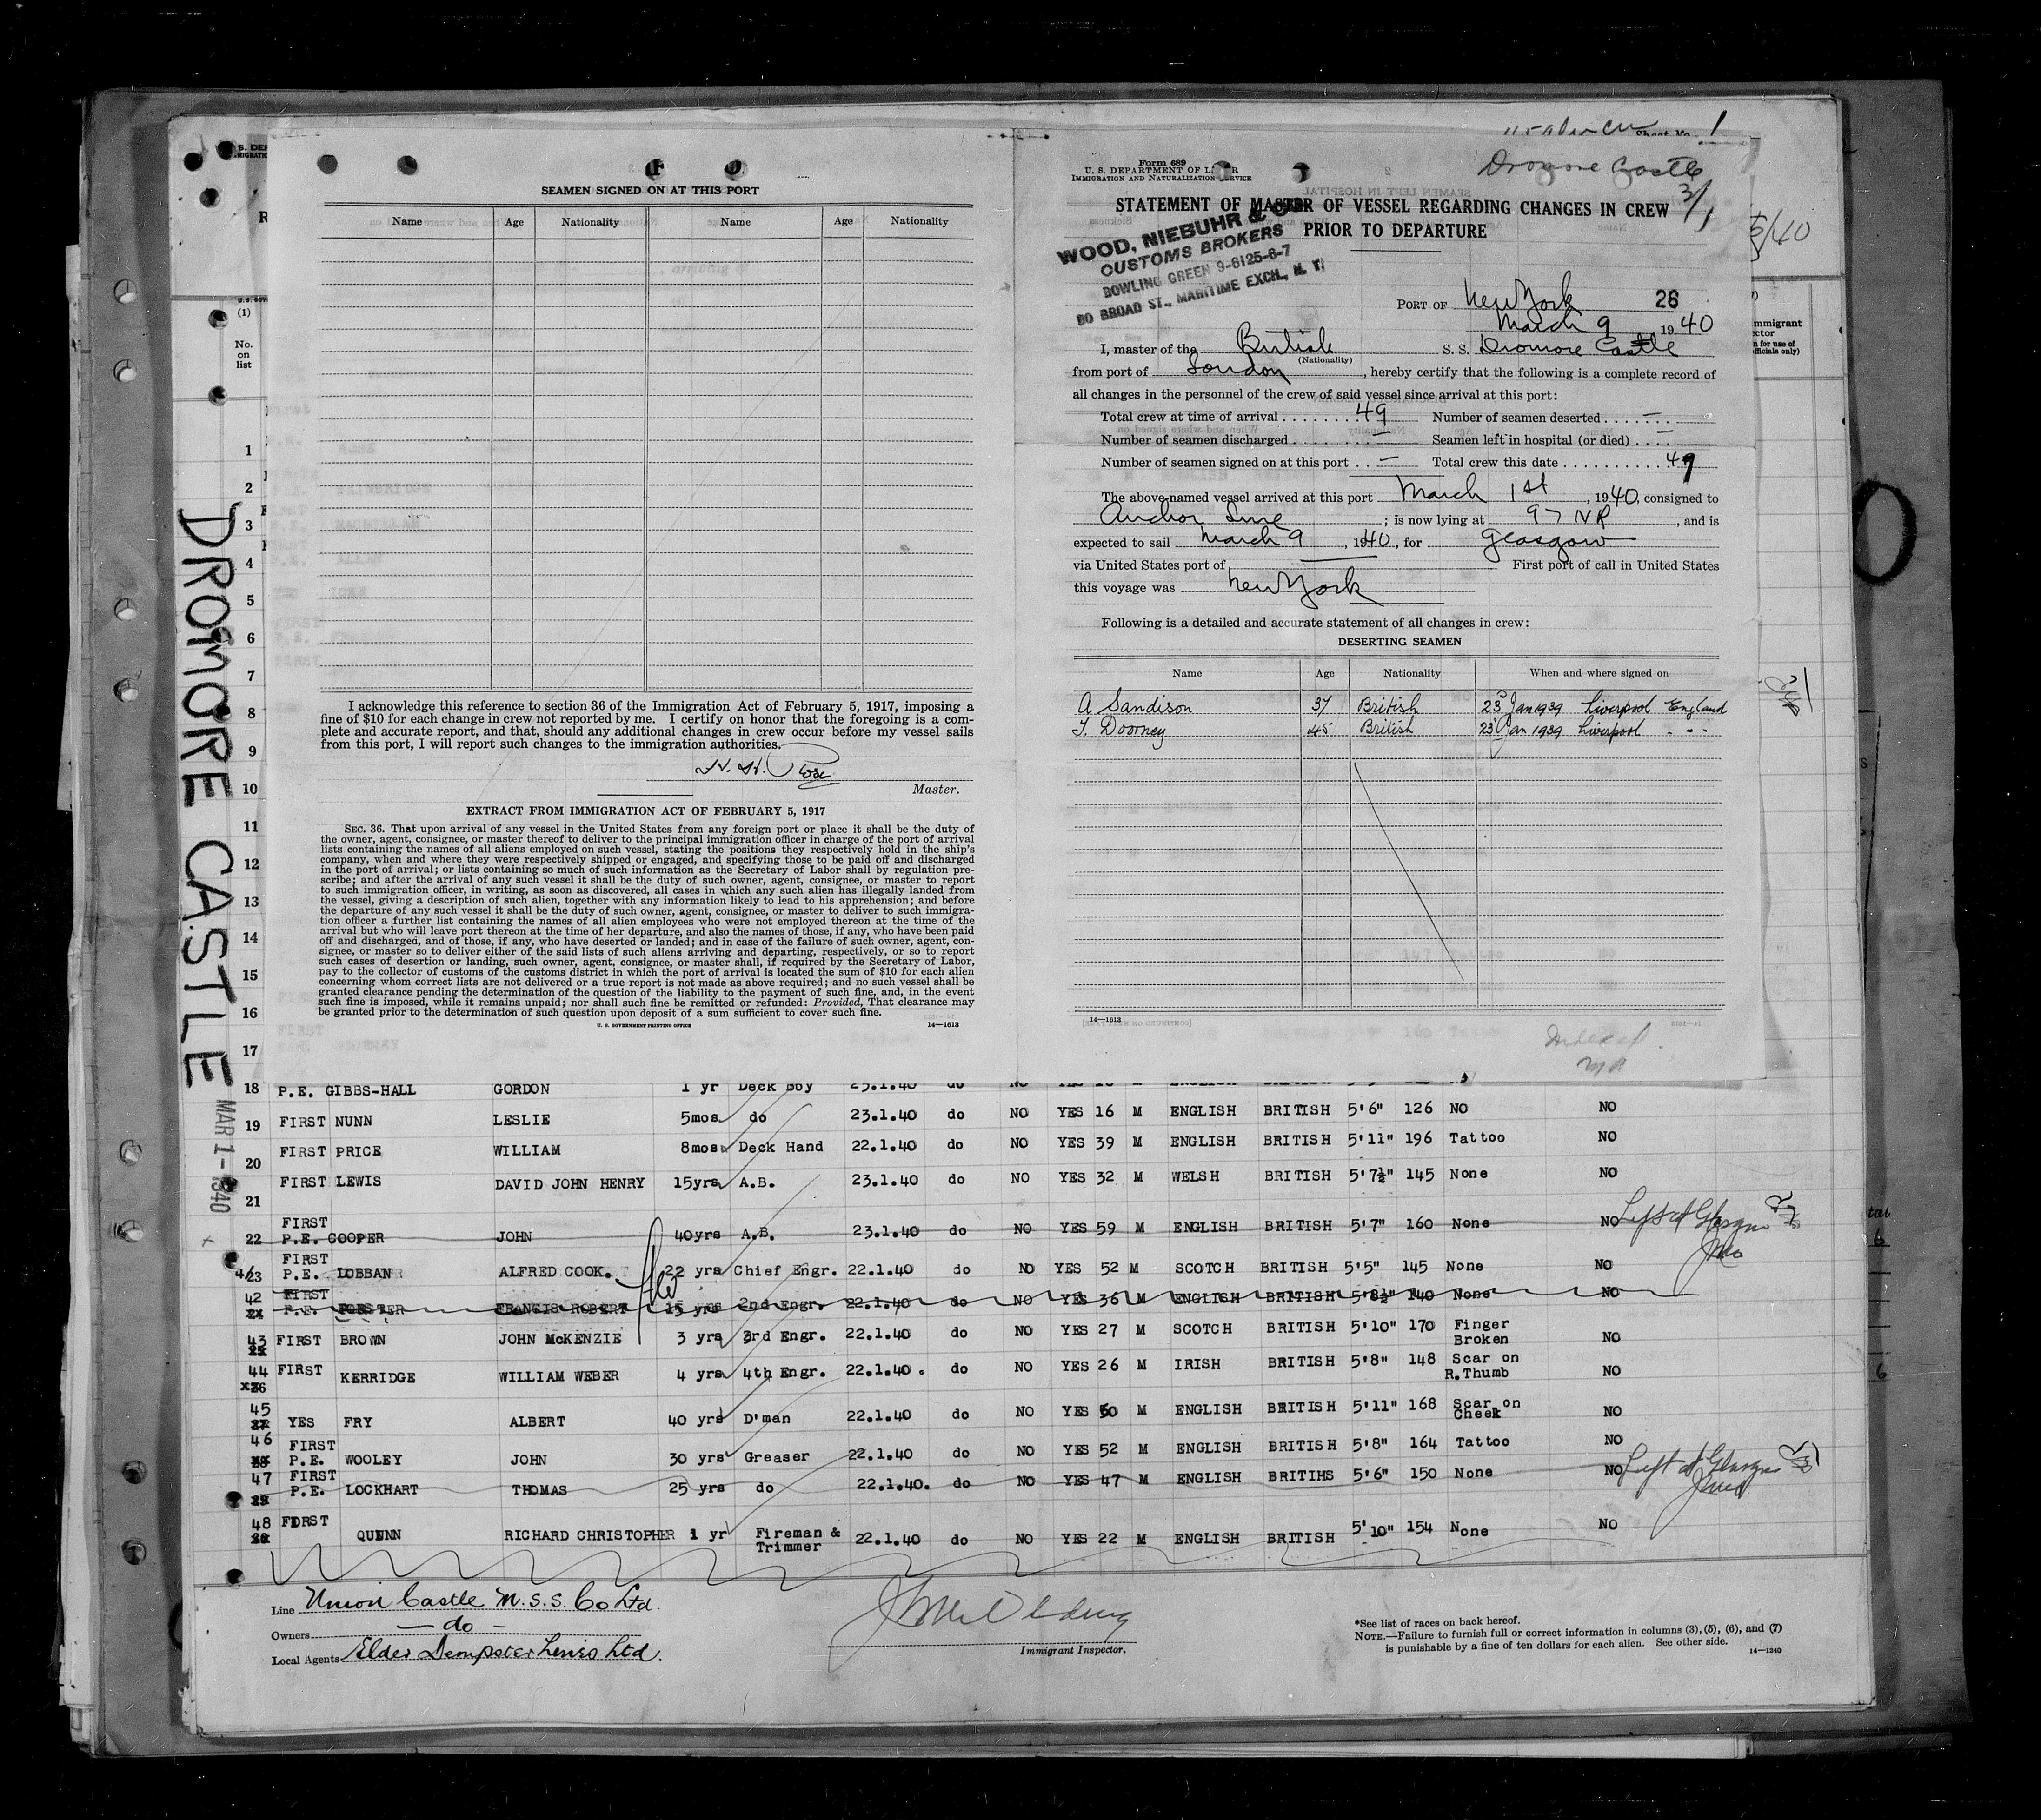 SEAMEN SIGNED ON AT THIS PORT
Name Age Nationality Name Age Nationality
I acknowledge this reference to section 36 of the Immigration Act of February 5, 1917, imposing a
fine of $10 for each change in crew not reported by me. I certify on honor that the foregoing is a com-
plete and accurate report, and that, should any additional changes in crew occur before my vessel sails
from this port, I will report such changes to the immigration authorities.
Master.
EXTRACT FROM IMMIGRATION ACT OF FEBRUARY 5, 1917
SEC. 36. That upon arrival of any vessel in the United States from any foreign port or place it shall be the duty of
the owner, agent, consignee, or master thereof to deliver to the principal immigration officer in charge of the port of arrival
lists containing the names of all aliens employed on such vessel, stating the positions they respectively hold in the ship's
company, when and where they were respectively shipped or engaged, and specifying those to be paid off and discharged
in the port of arrival; or lists containing so much of such information as the Secretary of Labor shall by regulation pre-
scribe; and after the arrival of any such vessel it shall be the duty of such owner, agent, consignee, or master to report
to such immigration officer, in writing, as soon as discovered, all cases in which any such alien has illegally landed from
the vessel, giving a description of such alien, together with any information likely to lead to his apprehension; and before
the departure of any such vessel it shall be the duty of such owner, agent, consignee, or master to deliver to such immigra-
tion officer a further list containing the names of all alien employees who were not employed thereon at the time of the
arrival but who will leave port thereon at the time of her departure, and also the names of those, if any, who have been paid
off and discharged, and of those, if any, who have deserted or landed; and in case of the failure of such owner, agent, con-
signee, or master so to deliver either of the said lists of such aliens arriving and departing, respectively, or so to report
such cases of desertion or landing, such owner, agent, consignee, or master shall, if required by the Secretary of Labor,
pay to the collector of customs of the customs district in which the port of arrival is located the sum of $10 for each alien
concerning whom correct lists are not delivered or a true report is not made as above required; and no such vessel shall be
granted clearance pending the determination of the question of the liability to the payment of such fine, and, in the event
such fine is imposed, while it remains unpaid; nor shall such fine be remitted or refunded: Provided, That clearance may
be granted prior to the determination of such question upon deposit of a sum sufficient to cover such fine.
U. S. GOVERNMENT PRINTING OFFICE 14—1613
1
Dromore Castle
3/1
Form 689
U. S. DEPARTMENT OF LABOR
IMMIGRATION AND NATURALIZATION SERVICE
STATEMENT OF MASTER OF VESSEL REGARDING CHANGES IN CREW
PRIOR TO DEPARTURE
WOOD, NIEBUHR & CO.
CUSTOMS BROKERS
BOWLING GREEN 9-6125-6-7
80 BROAD ST., MARITIME EXCH., N. Y.
PORT OF New York 26
March 9 1940
I, master of the British S. S. Dromore Castle
(Nationality)
from port of London, hereby certify that the following is a complete record of
all changes in the personnel of the crew of said vessel since arrival at this port:
Total crew at time of arrival 49 Number of seamen deserted —
Number of seamen discharged — Seamen left in hospital (or died) —
Number of seamen signed on at this port — Total crew this date 49
The above-named vessel arrived at this port March 1st, 1940, consigned to
Anchor Line; is now lying at 97 NR, and is
expected to sail March 9, 1940, for Glasgow
via United States port of First port of call in United States
this voyage was New York
Following is a detailed and accurate statement of all changes in crew:
DESERTING SEAMEN
Name Age Nationality When and where signed on
A Sandison 37 British 23rd Jan 1939 Liverpool England
T. Doorney 45 British 23rd Jan 1939 Liverpool - - -
14—1613
Indexed
DROMORE CASTLE
MAR 1 - 1940
(1)
No.
on
list
1
2
3
4
5
6
7
8
9
10
11
12
13
14
15
16
17
18 P.E. GIBBS-HALL GORDON 1 yr Deck Boy 23.1.40 do
19 FIRST NUNN LESLIE 5mos do 23.1.40 do NO YES 16 M ENGLISH BRITISH 5'6" 126 NO NO
20 FIRST PRICE WILLIAM 8mos Deck Hand 22.1.40 do NO YES 39 M ENGLISH BRITISH 5'11" 196 Tattoo NO
21 FIRST LEWIS DAVID JOHN HENRY 15yrs A.B. 23.1.40 do NO YES 32 M WELSH BRITISH 5'7½" 145 None NO
22 FIRST P.E. COOPER JOHN 40yrs A.B. 23.1.40 do NO YES 59 M ENGLISH BRITISH 5'7" 160 None NO Left at Glasgow
23 FIRST P.E. LOBBAN ALFRED COOK. 22 yrs Chief Engr. 22.1.40 do NO YES 52 M SCOTCH BRITISH 5'5" 145 None NO
42 24 FIRST P.E. FORSTER FRANCIS ROBERT 15 yrs 2nd Engr. 22.1.40 do NO YES 36 M ENGLISH BRITISH 5'8½" 140 None NO
43 25 FIRST BROWN JOHN McKENZIE 3 yrs 3rd Engr. 22.1.40 do NO YES 27 M SCOTCH BRITISH 5'10" 170 Finger Broken NO
44 26 FIRST KERRIDGE WILLIAM WEBER 4 yrs 4th Engr. 22.1.40. do NO YES 26 M IRISH BRITISH 5'8" 148 Scar on R.Thumb NO
45 27 YES FRY ALBERT 40 yrs D'man 22.1.40 do NO YES 60 M ENGLISH BRITISH 5'11" 168 Scar on Cheek NO
46 28 FIRST P.E. WOOLEY JOHN 30 yrs Greaser 22.1.40 do NO YES 52 M ENGLISH BRITISH 5'8" 164 Tattoo NO
47 29 FIRST P.E. LOCKHART THOMAS 25 yrs do 22.1.40. do NO YES 47 M ENGLISH BRITIHS 5'6" 150 None NO Left at Glasgow
48 FIRST QUINN RICHARD CHRISTOPHER 1 yr Fireman & Trimmer 22.1.40 do NO YES 22 M ENGLISH BRITISH 5'10" 154 None NO
Line Union Castle M.S.S. Co Ltd.
Owners — do —
Local Agents Elder Dempster Lewis Ltd.
Immigrant Inspector.
*See list of races on back hereof.
NOTE.—Failure to furnish full or correct information in columns (3), (5), (6), and (7)
is punishable by a fine of ten dollars for each alien. See other side.
14—1240